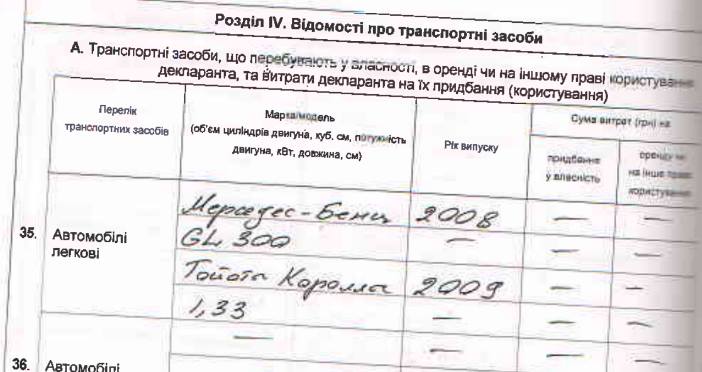 Розділ IV. Відомості про транспортні засоби
А. Транспортні засоби, що перебувають у власності, в оренді чи на іншому праві користування
декларанта, та витрати декларанта на їх придбання (користування)
Перелік
транспортних засобів
Марка/модель
(об'єм циліндрів двигуна, куб. см, потужність
двигуна, кВт, довжина, см)
Рік випуску
Сума витрат (грн) на
придбання
у власність
оренду чи
на інше право
користування
35. Автомобілі
легкові
Мерседес-Бенц 2008 — —
GL 300 — — —
Тойота Королла 2009 — —
1,33 — — —
— — — —
36. Автомобілі